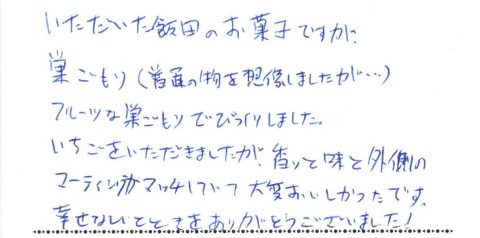 いただいた飯田のお菓子ですが、
巣ごもり(普通の物を想像しましたが…)
フルーツな巣ごもりでびっくりしました。
いちごをいただきましたが、香りと味と外側の
コーティングがマッチしていて大変おいしかったです。
幸せないとときをありがとうございました!